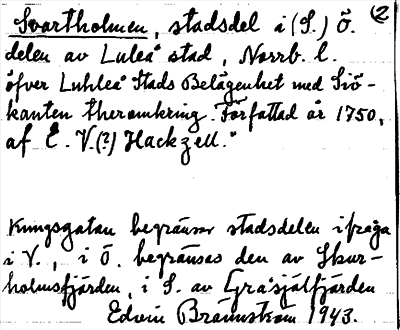 Svartholmen, stadsdel i (S.) Ö. (2
delen av Luleå stad, Norrb. l.
öfver Luhleå Stads Belägenhet med Siö-
kanten theromkring. Författad år 1750,
af E. V.(?) Hackzell."
Kungsgatan begränsar stadsdelen ifråga
i V., i Ö. begränsas den av Skur-
holmsfjärden, i S. av Gråsjälfjärden
Edvin Brännström 1943.